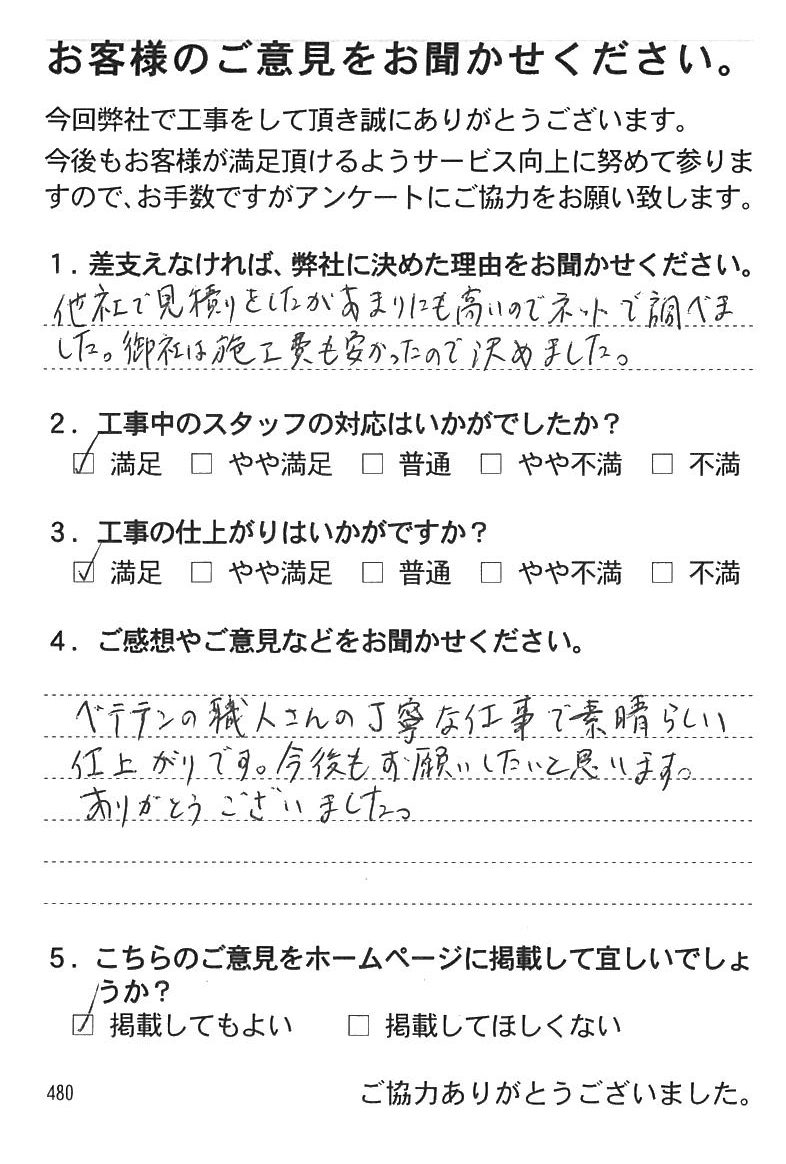 お客様のご意見をお聞かせください。
今回弊社で工事をして頂き誠にありがとうございます。
今後もお客様が満足頂けるようサービス向上に努めて参りま
すので、お手数ですがアンケートにご協力をお願い致します。
1. 差支えなければ、弊社に決めた理由をお聞かせください。
他社で見積りをしたがあまりにも高いのでネットで調べま
した。御社は施工費も安かったので決めました。
2. 工事中のスタッフの対応はいかがでしたか？
☑ 満足 □ やや満足 □ 普通 □ やや不満 □ 不満
3. 工事の仕上がりはいかがですか？
☑ 満足 □ やや満足 □ 普通 □ やや不満 □ 不満
4. ご感想やご意見などをお聞かせください。
ベテランの職人さんの丁寧な仕事で素晴らしい
仕上がりです。今後もお願いしたいと思います。
ありがとうございました。
5. こちらのご意見をホームページに掲載して宜しいでしょ
うか？
☑ 掲載してもよい □ 掲載してほしくない
480 ご協力ありがとうございました。